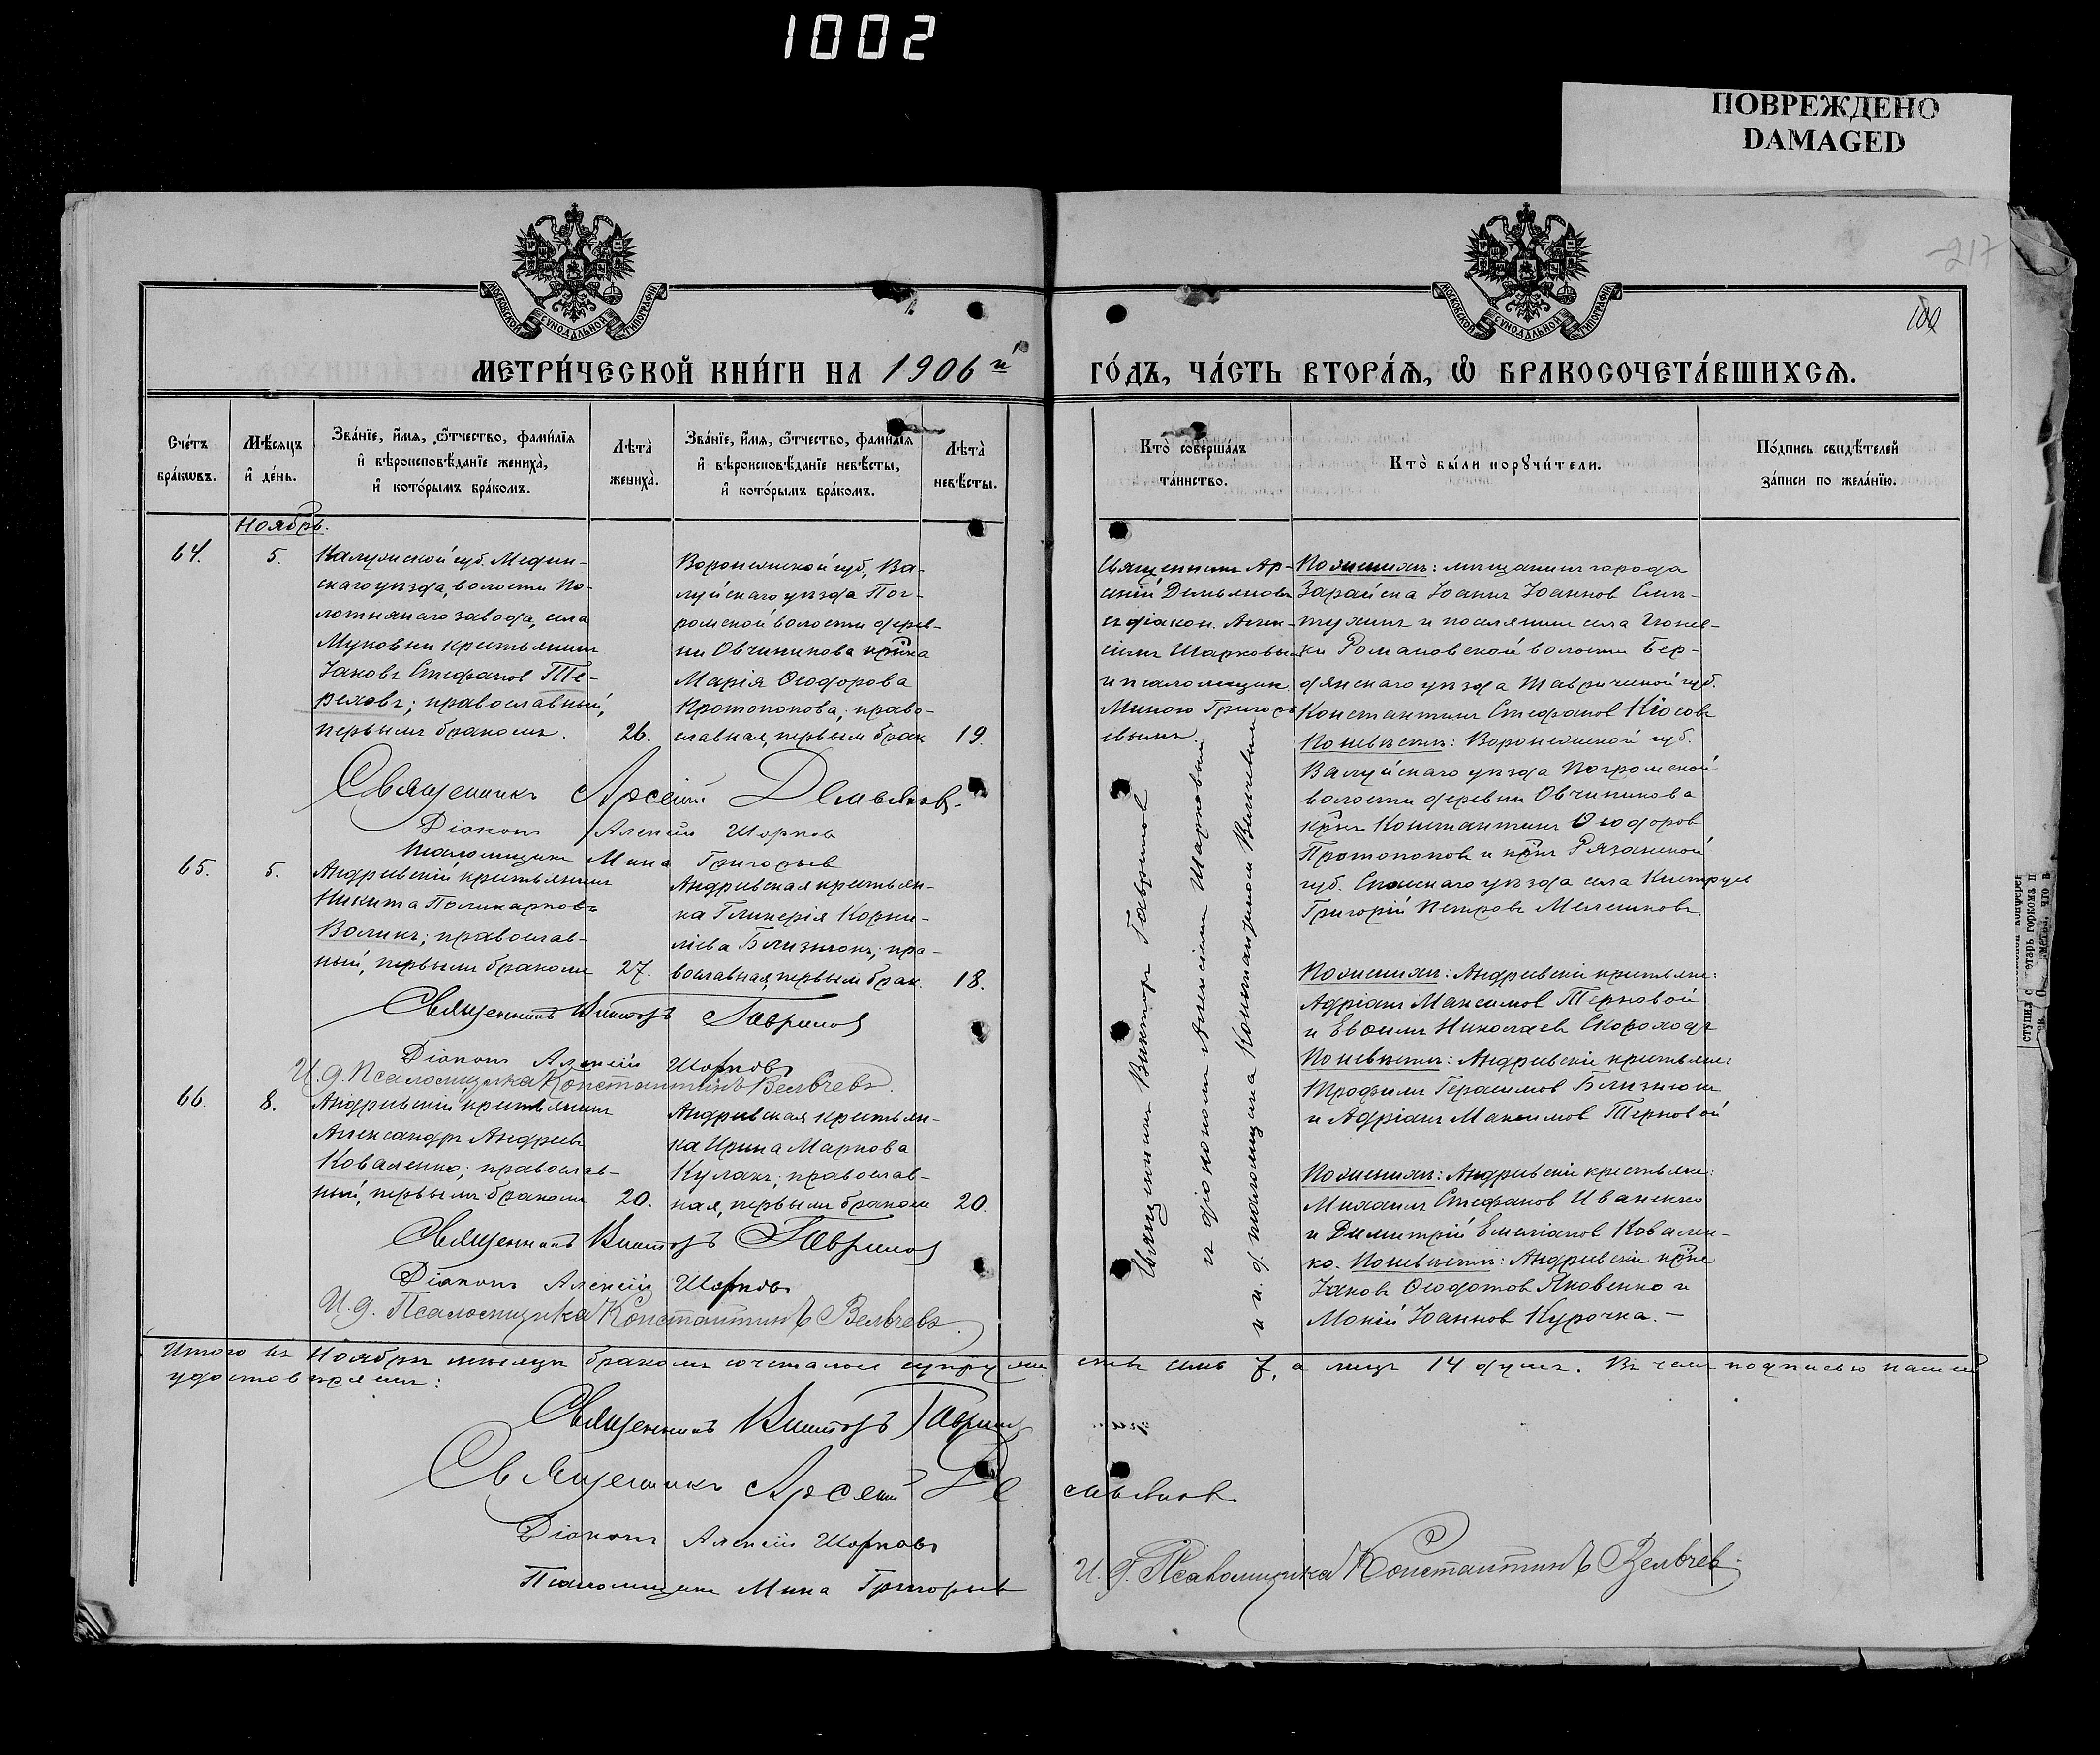 1002
ПОВРЕЖДЕНО
DAMAGED
217
МОСКОВСКОЙ СУНОДАЛЬНОЙ ТИПОГРАФІИ
МОСКОВСКОЙ СУНОДАЛЬНОЙ ТИПОГРАФІИ
МЕТРИ́ЧЕСКОЙ КНИ́ГИ НА 1906й
ГО́ДЪ, ЧА́СТЬ ВТОРА́Ѧ, Ѡ БРАКОСОЧЕТА́ВШИХСѦ.
Сче́тъ
бра́кѡвъ.
Мѣ́сяцъ
и҆ де́нь.
Зва́нїе, и҆́мя, ѻ҆́тчество, фами́лїя
и҆ вѣроисповѣ́данїе жениха̀,
и҆ кото́рымъ бра́комъ.
Лѣта̀
жениха̀.
Зва́нїе, и҆́мя, ѻ҆́тчество, фами́лїя
и҆ вѣроисповѣ́данїе невѣ́сты,
и҆ кото́рымъ бра́комъ.
Лѣта̀
невѣ́сты.
Кто̀ соверша́лъ
та́инство.
Кто̀ бы́ли порꙋчи́тели.
По́дпись свидѣ́телей
за́писи по жела́нїю.
Ноябрь.
64.
5.
Калужской губ. Медын-
скаго уѣзда, волости По-
лотнянаго завода, села
Муковни крестьянинъ
Іаковъ Стефановъ Те-
реховъ; православный,
первымъ бракомъ.
26.
Воронежской губ., Ва-
луйскаго уѣзда Пог-
ромской волости дерев-
ни Овчинникова кр-нка
Марія Ѳеодорова
Протопопова; право-
славная, первым брак
19.
Священникъ Ар-
сеній Демьяновъ
съ діакон. Алек-
сіемъ Шарковымъ
и псаломщик.
Миною Григорь-
евымъ.
По женихѣ: мѣщанинъ города
Зарайска Іоаннъ Іоанновъ
и поселянинъ села
Романовской волости Бер-
дянскаго уѣзда Таврической губ.
Константинъ Стефановъ Кіосовъ
По невѣстѣ: Воронежской губ.
Валуйскаго уѣзда Погромской
волости деревни Овчинникова
кр-нъ Константинъ Ѳеодоровъ
Протопоповъ и кр-нъ Рязанской
губ. Спасскаго уѣзда села Киструсъ
Григорій Петровъ Мелешковъ.
Священникъ Арсеній Демьяновъ.
Діаконъ Алексій Шарковъ
Псаломщикъ Мина Григорьевъ
65.
5.
Андреевскій крестьянинъ
Никита Поликарповъ
Воликъ; православ-
ный, первымъ бракомъ
27.
Андреевская крестьян-
ка Гликерія Корни-
ліева Близнюкъ; пра-
вославная, первым брак.
18.
По женихѣ: Андреевскіе крестьяне:
Адріанъ Максимовъ Терновой
и Евѳимъ Николаевъ Скороходъ
По невѣстѣ: Андреевскіе крестьяне:
Трофимъ Герасимовъ Близнюкъ
и Адріанъ Максимовъ Терновой
Священникъ Викторъ Гавриловъ
Діаконъ Алексій Шарковъ
И. д. Псаломщика Константинъ Вельчевъ.
66.
8.
Андреевскій крестьянинъ
Александръ Андреевъ
Коваленко; православ-
ный, первымъ бракомъ
20.
Андреевская крестьян-
ка Ирина Маркова
Кулакъ; православ-
ная, первымъ бракомъ
20.
По женихѣ: Андреевскіе крестьяне:
Михаилъ Стефановъ Иваненко
и Димитрій Емиліановъ Ковален-
ко. По невѣстѣ: Андреевскіе кр-не
Іаковъ Ѳеодотовъ Яковенко и
Мокій Іоанновъ Курочка. —
Священникъ Викторъ Гавриловъ
съ діакономъ Алексіемъ Шарковымъ
и и. д. псаломщика Константиномъ Вельчевымъ
Священникъ Викторъ Гавриловъ
Діаконъ Алексій Шарковъ
И. д. Псаломщика Константинъ Вельчевъ.
Итого въ Ноябрѣ мѣсяцѣ бракомъ сочеталось супружествъ семь 7, а лицъ 14 душъ. Въ чемъ подписью нашей
удостовѣряемъ:
Священникъ Викторъ Гавриловъ
Священникъ Арсеній Демьяновъ
Діаконъ Алексій Шарковъ
Псаломщикъ Мина Григорьевъ
И. д. Псаломщика Константинъ Вельчевъ.